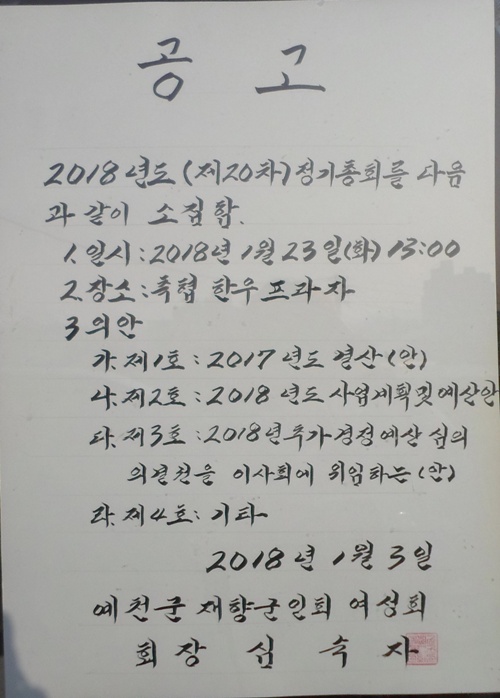 공 고
2018년도 (제20차) 정기총회를 다음
과 같이 소집함.
1. 일시 : 2018년 1월 23일(화) 13:00
2. 장소 : 축협 한우프라자
3 의안
가. 제1호 : 2017년도 결산(안)
나. 제2호 : 2018년도 사업계획및예산안
다. 제3호 : 2018년추가경정예산 심의
의결권을 이사회에 위임하는(안)
라. 제4호 : 기타
2018년 1월 3일
예천군 재향군인회 여성회
회장 심숙자